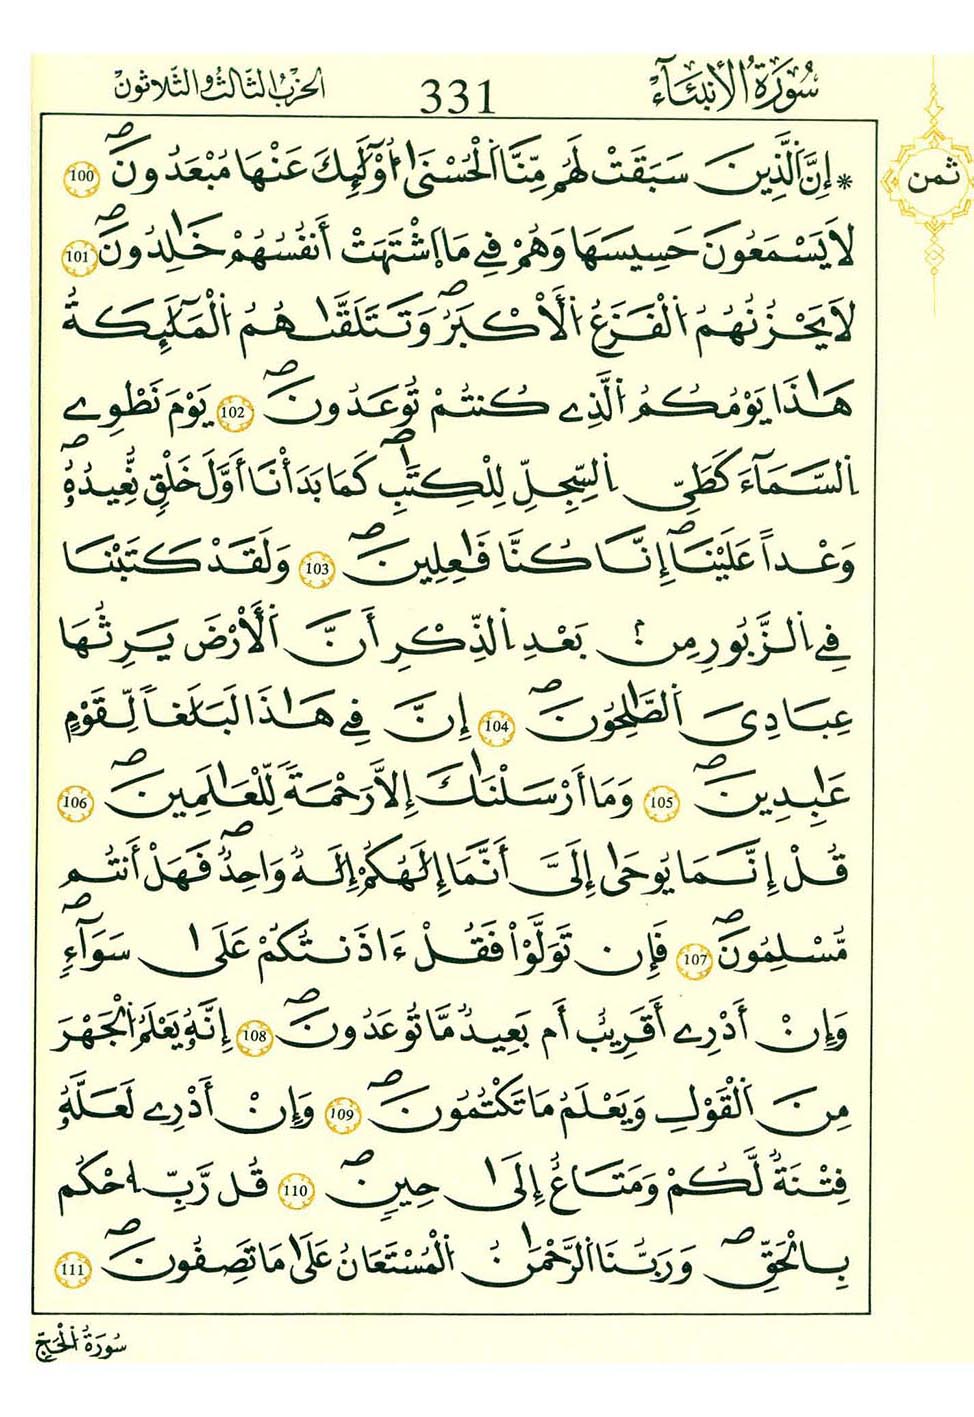 سُورَةُ الأَنبِئَآءِ 331 الحِزْبُ الثَّالِثُ وَالثَّلَاثُونَ
ثمن
* إِنَّ اَ۬لذِينَ سَبَقَتْ لَهُم مِّنَّا اَ۬لْحُسْن۪ىٰٓ أُوْلَٰٓئِكَ عَنْهَا مُبْعَدُونَۖ 100
لَا يَسْمَعُونَ حَسِيسَهَا وَهُمْ فِے مَا اَ۪شْتَهَتْ أَنفُسُهُمْ خَٰلِدُونَۖ 101
لَا يَحْزُنُهُمُ اُ۬لْفَزَعُ اُ۬لَاكْبَرُۖ وَتَتَلَقّ۪ىٰهُمُ اُ۬لْمَلَٰٓئِكَةُ
هَٰذَا يَوْمُكُمُ اُ۬لذِے كُنتُمْ تُوعَدُونَۖ 102 يَوْمَ نَطْوِے
اِ۬لسَّمَآءَ كَطَيِّ اِ۬لسِّجِلِّ لِلْكِتَٰبِۖ كَمَا بَدَأْنَا أَوَّلَ خَلْقٖ نُّعِيدُهُۥۖ
وَعْداً عَلَيْنَاۖ إِنَّا كُنَّا فَٰعِلِينَۖ 103 وَلَقَدْ كَتَبْنَا
فِے اِ۬لزَّبُورِ مِنۢ بَعْدِ اِ۬لذِّكْرِ أَنَّ اَ۬لَارْضَ يَرِثُهَا
عِبَادِيَ اَ۬لصَّٰلِحُونَۖ 104 إِنَّ فِے هَٰذَا لَبَلَٰغاٗ لِّقَوْمٍ
عَٰبِدِينَۖ 105 وَمَا أَرْسَلْنَٰكَ إِلَّا رَحْمَةٗ لِّلْعَٰلَمِينَۖ 106
قُلْ إِنَّمَا يُوح۪ىٰٓ إِلَيَّ أَنَّمَا إِلَٰهُكُمْ إِلَٰهٞ وَٰحِدٞۖ فَهَلْ أَنتُم
مُّسْلِمُونَۖ 107 فَإِن تَوَلَّوْاْ فَقُلْ ءَاذَنتُكُمْ عَلَىٰ سَوَآءٖۖ
وَإِنْ أَدْرِے أَقَرِيبٌ أَم بَعِيدٞ مَّا تُوعَدُونَۖ 108 إِنَّهُۥ يَعْلَمُ اُ۬لْجَهْرَ
مِنَ اَ۬لْقَوْلِ وَيَعْلَمُ مَا تَكْتُمُونَۖ 109 وَإِنْ أَدْرِے لَعَلَّهُۥ
فِتْنَةٞ لَّكُمْ وَمَتَٰعٌ إِلَىٰ حِينٖۖ 110 قُل رَّبِّ اِ۟حْكُم
بِالْحَقِّۖ وَرَبُّنَا اَ۬لرَّحْمَٰنُ اُ۬لْمُسْتَعَانُ عَلَىٰ مَا تَصِفُونَۖ 111
سُورَةُ اُ۬لْحَجِّ